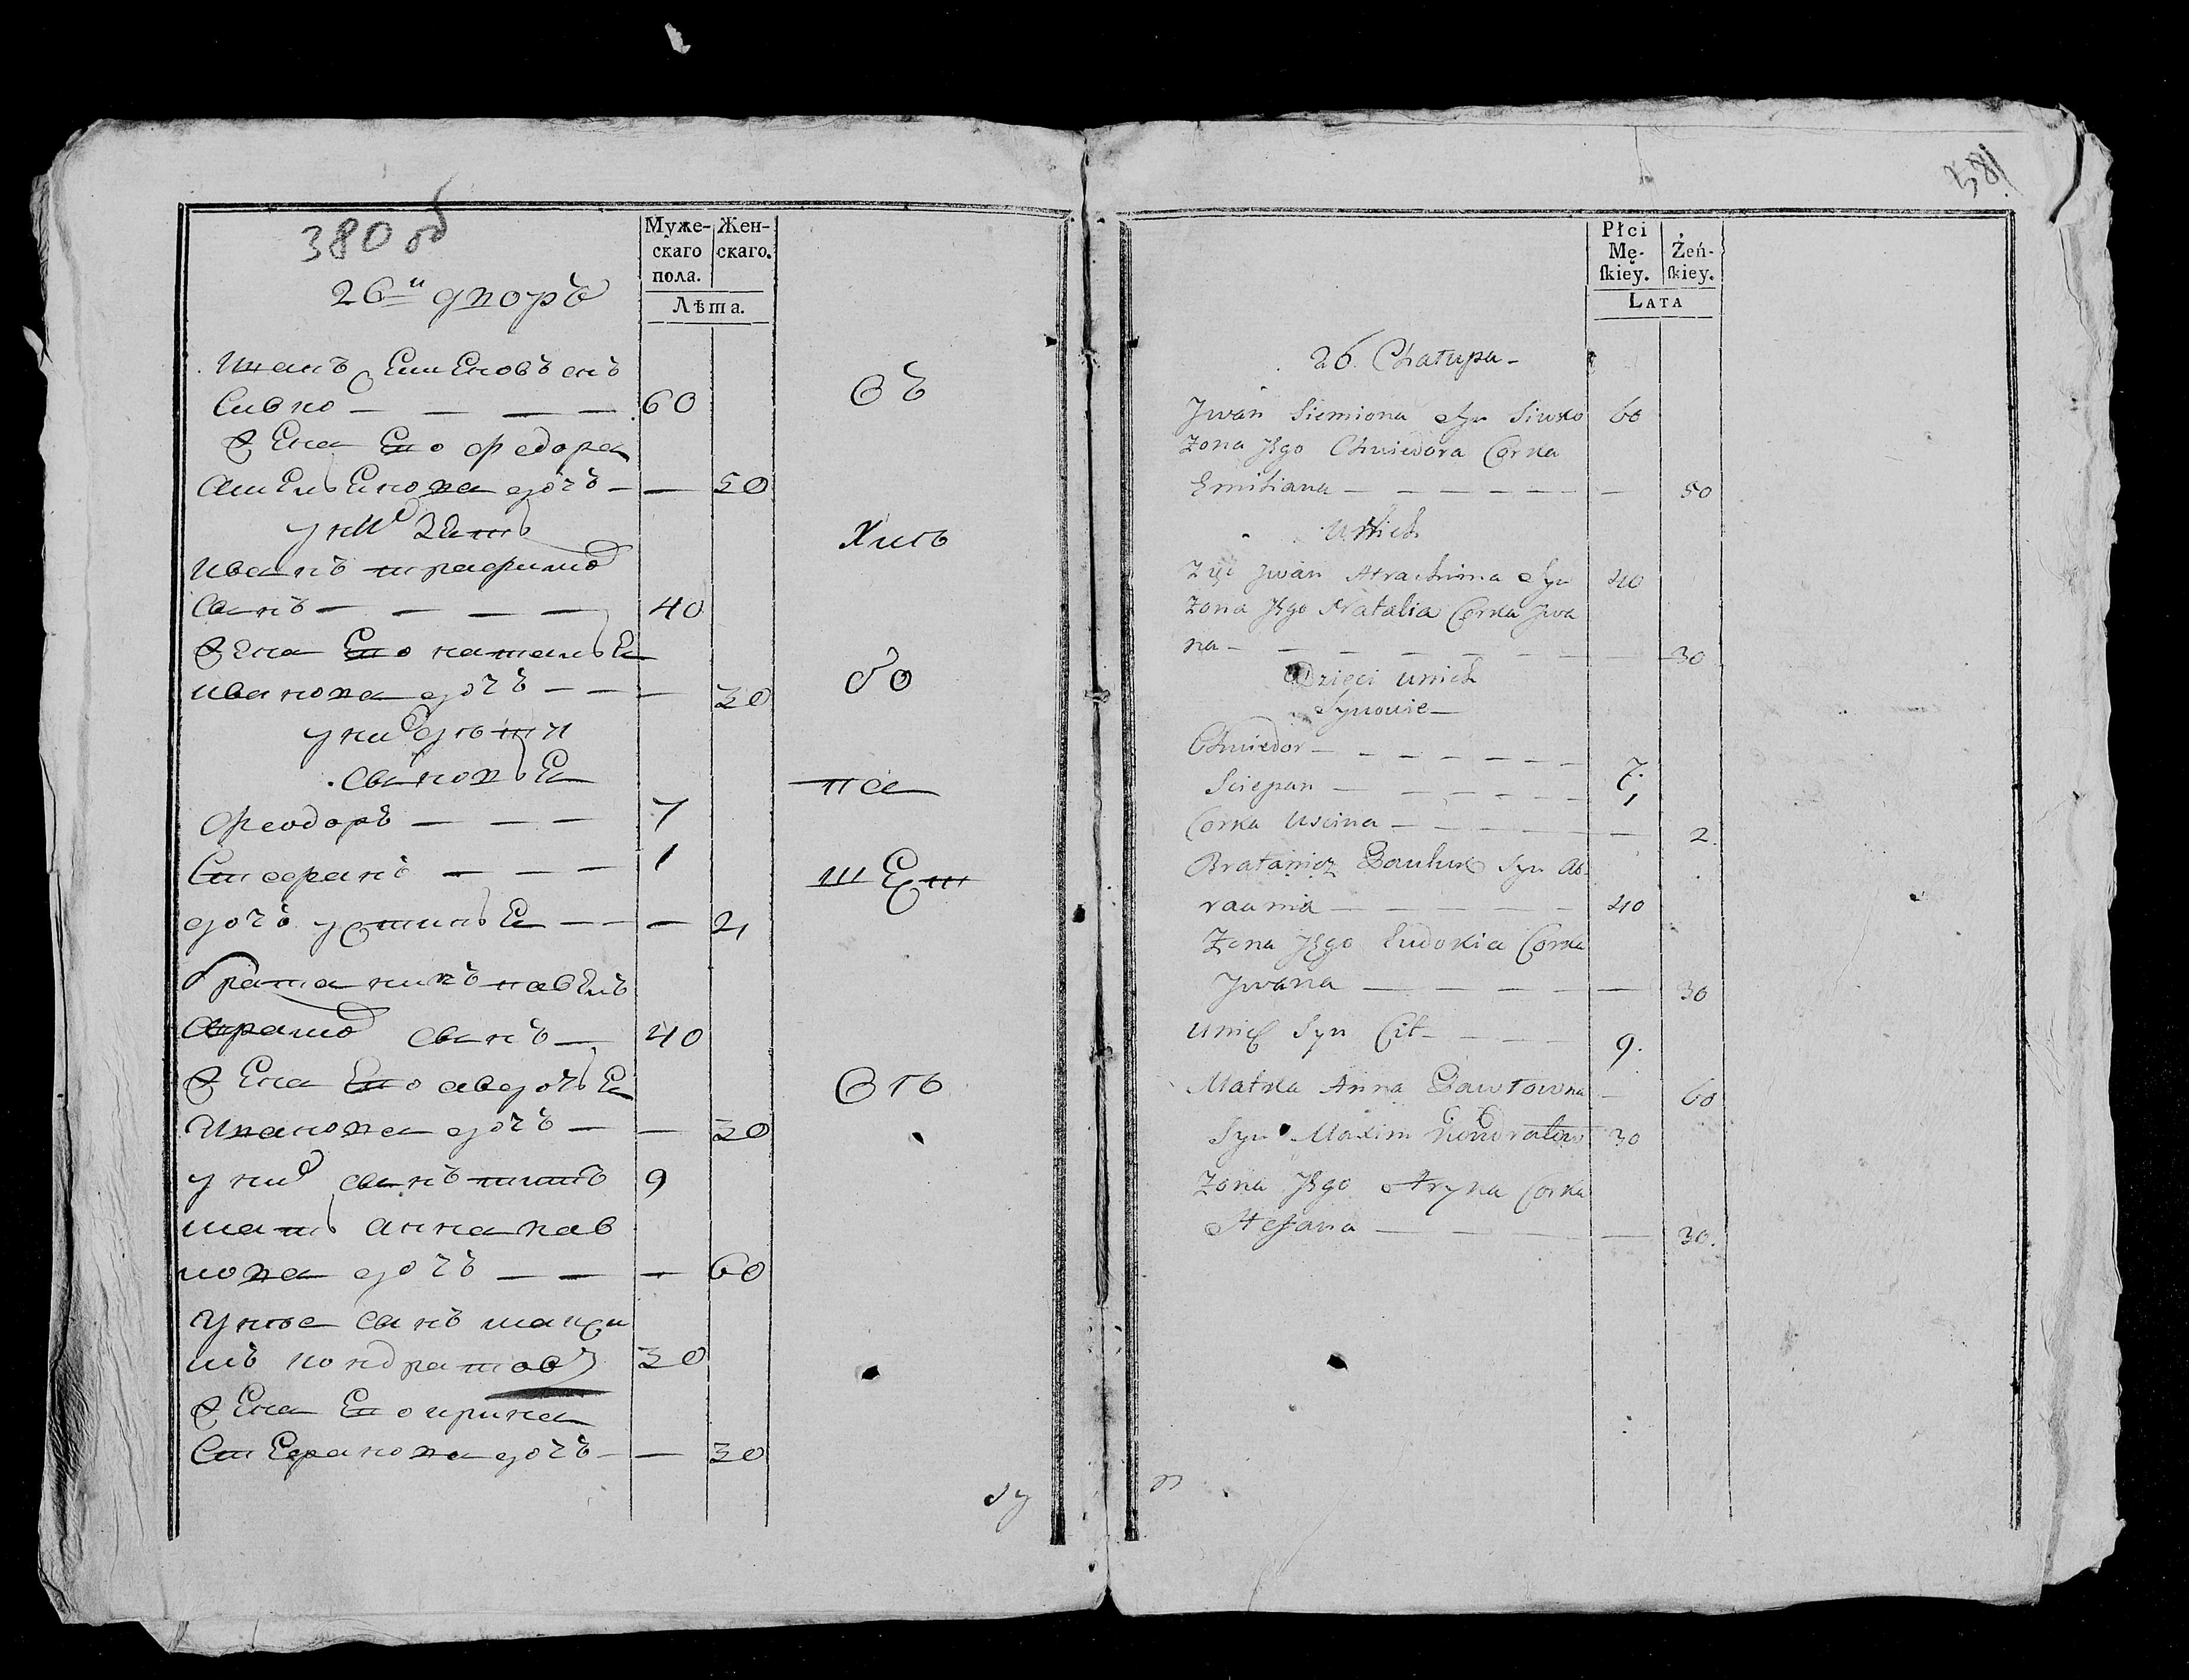 380 об
Муже- Жен-
скаго скаго.
пола.
Лѣта.
26й дворъ
Иванъ Семеновъ снъ
Сивко — — — — 60
Жена Его Федора
Амельянова дочь — — 50
у них Зять
Иванъ трафимов
сынъ — — — — 40
Жена Его наталья
иванова дочь — — — 30
у них дети
сыновья
Феодоръ — — — 7
Стефанъ — — — 1
дочь устинья — — — 2
братаникъ павелъ
аврамов сынъ — 40
Жена Его авдотья
Иванова дочь — — 30
у них сынъ титъ 9
мать анна пав
лова дочь — — — 60
у нее сынъ макси
мъ кондратовъ 30
Жена Его ирина
Стефанова дочь — — 30
381
Płci
Mę- Żeń-
ſkiey. ſkiey.
LATA
26. Chałupa —
Jwan Siemiona Syn Siwko 60
Zona Jego Chwiedora Corka
Emiliana — — — — — — 50
U Nich
Zięć Jwan Atrachima Syn 40
Zona Jego Natalia Corka Jwa
na — — — — — — — 30
Dzieci u nich
Synowie —
Chwiedor — — — — — — 7.
Sciepan — — — — — 1
Corka Uscina — — — — — 2.
Bratanicz Pauluk Syn Ab-
raama — — — — — 40
Zona Jego Eudokia Corka
Jwana — — — — — — 30
U nich Syn Cit — — — — 9.
Matka Anna Pawłowna — 60
Syn Maxim Kondratow 30
Zona Jego Aryna Corka
Stefana — — — — — 30.